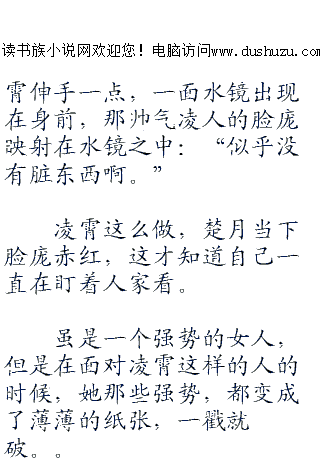 读书族小说网欢迎您！电脑访问www.dushuzu.com
霄伸手一点，一面水镜出现
在身前，那帅气凌人的脸庞
映射在水镜之中：“似乎没
有脏东西啊。”
凌霄这么做，楚月当下
脸庞赤红，这才知道自己一
直在盯着人家看。
虽是一个强势的女人，
但是在面对凌霄这样的人的
时候，她那些强势，都变成
了薄薄的纸张，一戳就
破。。